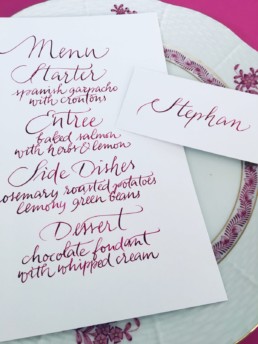 Menu
Starter
spanish gazpacho
with croutons
Entree
baked salmon
with herbs & lemon
Side Dishes
rosemary roasted potatoes
lemony green beans
Dessert
chocolate fondant
with whipped cream
Stephan